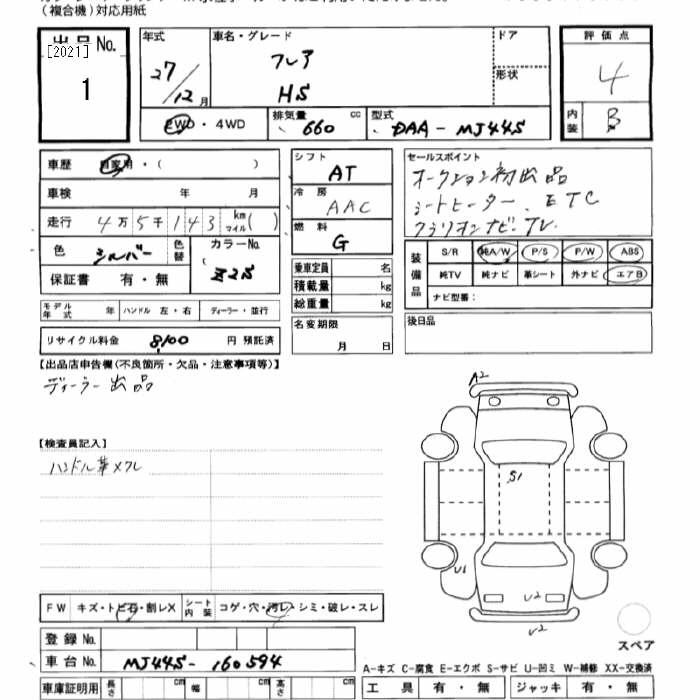 (複合機)対応用紙
出品No.
[2021]
1
年式
27/12月
車名・グレード
フレア
HS
ドア
形状
評価点
4
内装
B
2WD・4WD
排気量
660 cc
型式
DAA-MJ44S
車歴 自家用・( )
車検 年 月
走行 4万5千143 km マイル( )
色 シルバー 色替
カラーNo.
( Z2S
保証書 有・無
モデル年式 年
ハンドル 左・右
ディーラー・並行
リサイクル料金 8,100 円 預託済
シフト
AT
冷房
AAC
燃料
G
乗車定員 名
積載量 kg
総重量 kg
名変期限
月 日
セールスポイント
オークション初出品
シートヒーター、ETC
クラリオンナビ・TV
装備品
S/R 純A/W P/S P/W ABS
純TV 純ナビ 革シート 外ナビ エアB
ナビ型番:
後日品
【出品店申告欄(不良箇所・欠品・注意事項等)】
ディーラー出品
【検査員記入】
ハンドル革メクレ
A2
S1
U1
U2
U2
スペア
FW キズ・トビ石・割レX
シート内装 コゲ・穴・汚レ・シミ・破レ・スレ
登録No.
車台No. MJ44S-160594
車庫証明用 長さ cm 幅 cm 高さ cm
A-キズ C-腐食 E-エクボ S-サビ U-凹ミ W-補修 XX-交換済
工具 有・無 ジャッキ 有・無